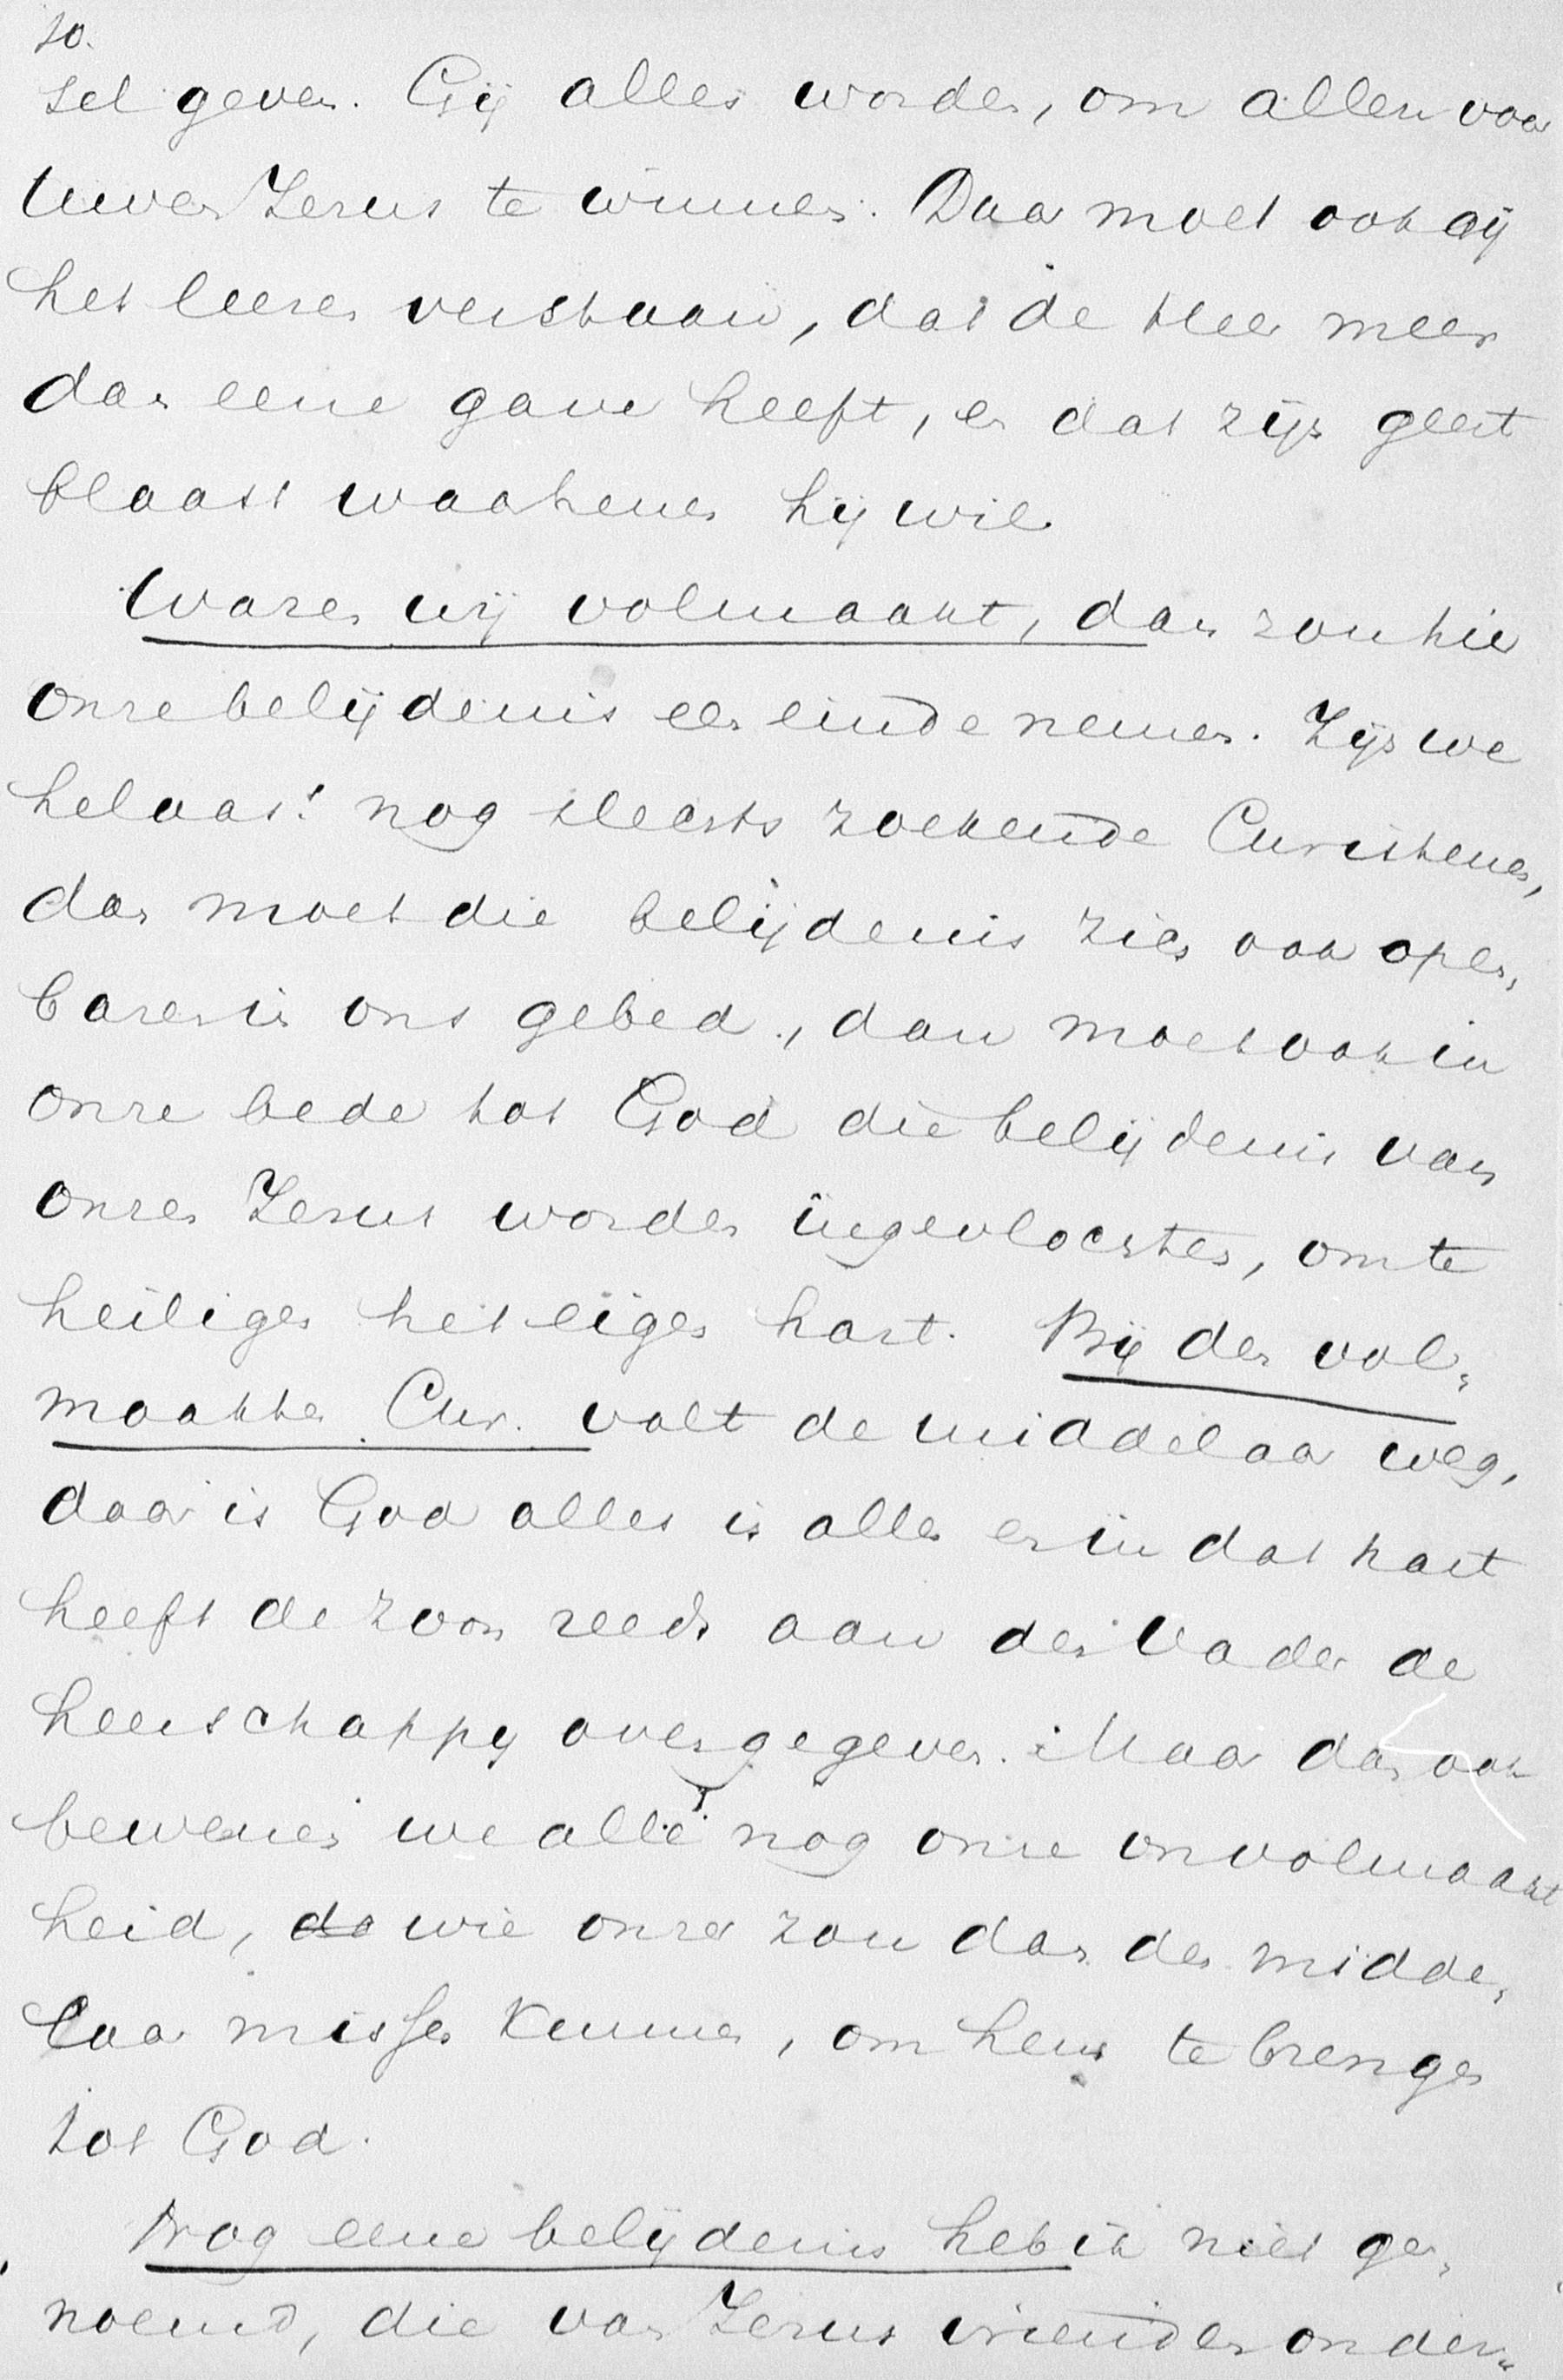 10.
sel geven. Gij alles worden, om allen voor
Uwen Jezus te winnen. Daar moet ook gij
het leeren verstaan, dat de Heer meer
dan eene gave heeft, en dat zijn geest
blaast waarhenen hij wil.
Waren wij volmaakt, dan zou hier
onze belijdenis een einde nemen. Zijn we
helaas! nog slechts zoekende Christenen,
dan moet die belijdenis zich ook open„
baren in ons gebed, dan moet ook in
onze bede tot God die belijdenis van
onzen Jezus worden ingevlochten, om te
heiligen het eigen hart. Bij den vol„
maakten Chr. valt de middelaar weg,
daar is God alles in allen en in dat hart
heeft de zoon reeds aan den Vader de
heerschappy overgegeven. Maar dan ook
beweenen we allen nog onze onvolmaakt
heid, da wie onzer zou dan den midde„
laar missen kunnen, om hem te brengen
tot God.
Nog eene belijdenis heb ik niet ge„
noemd, die van Jezus vrienden onder„